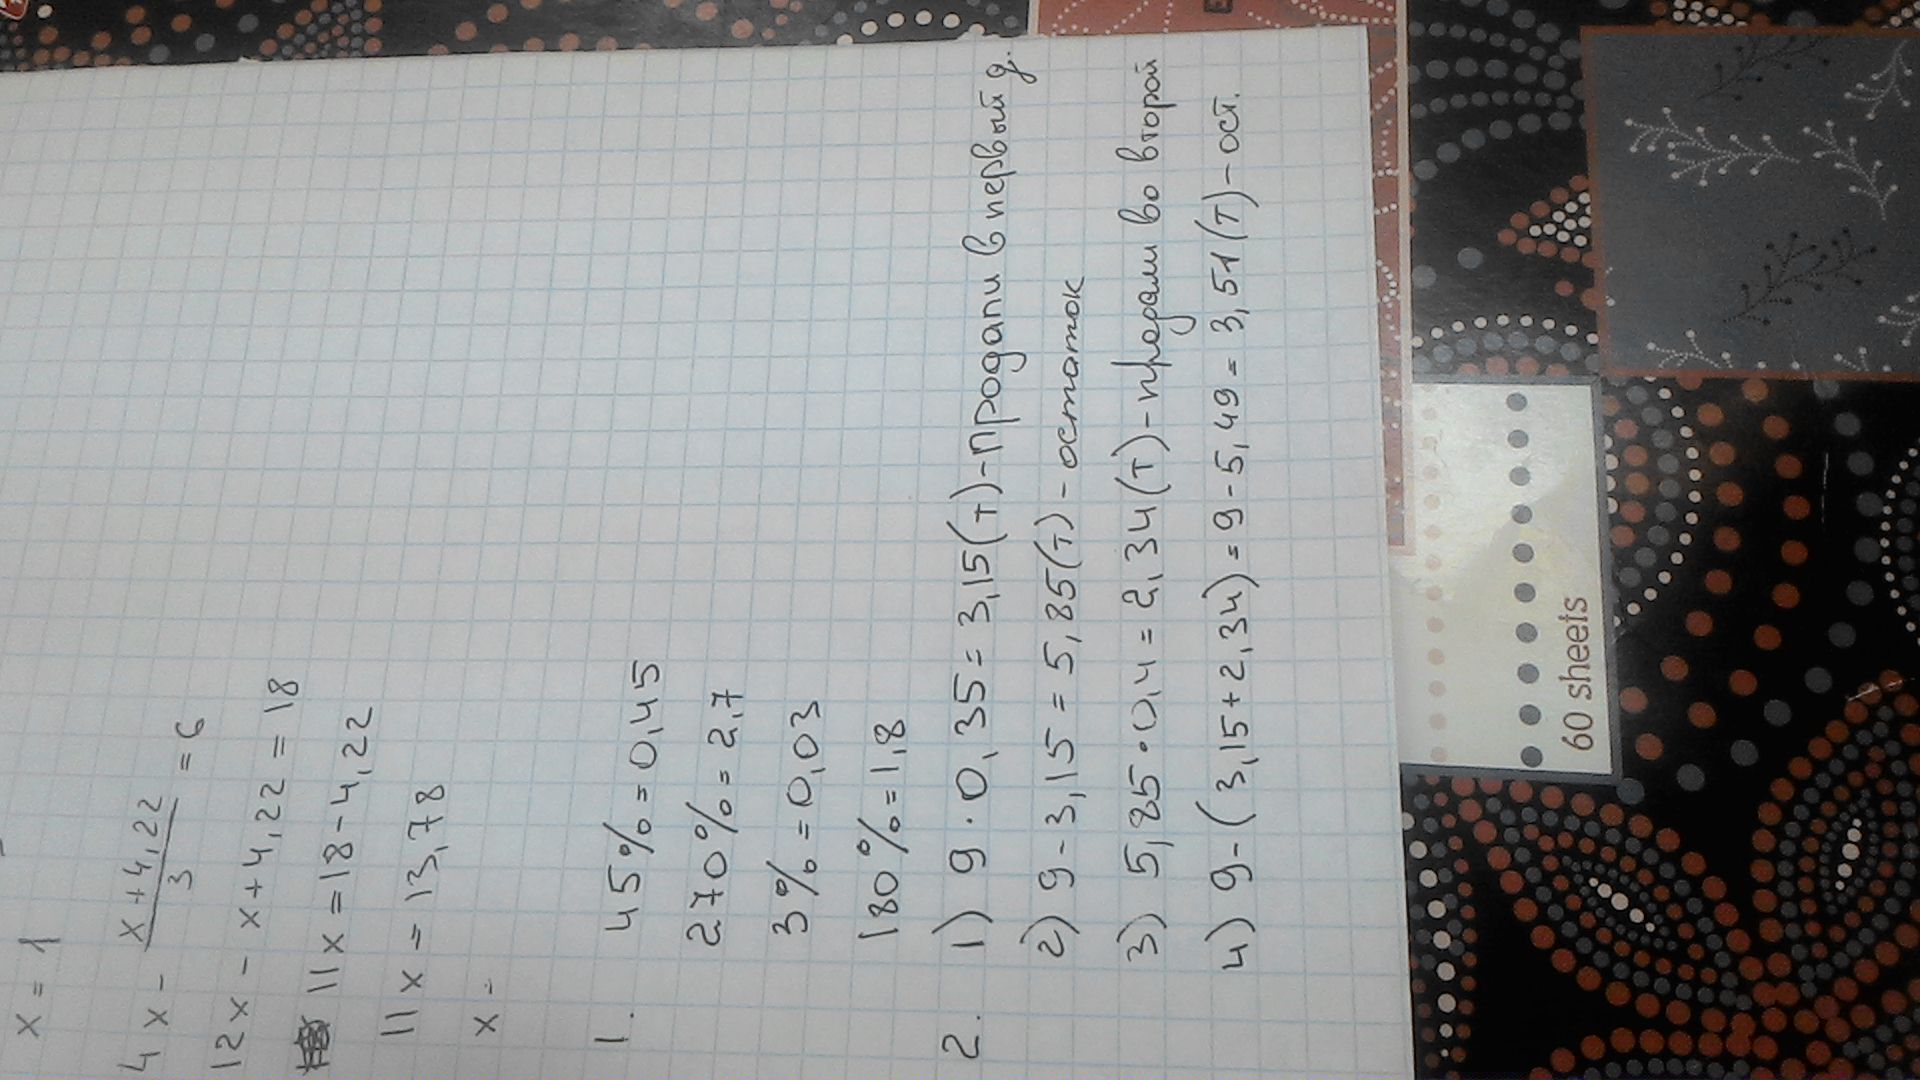 x = 1
4x - (x+4,22)/3 = 6
12x - x+4,22 = 18
11x = 18-4,22
11x = 13,78
x =
1. 45% = 0,45
270% = 2,7
3% = 0,03
180% = 1,8
2. 1) 9 · 0,35 = 3,15(т) - продали в первый д.
2) 9 - 3,15 = 5,85(т) - остаток
3) 5,85 · 0,4 = 2,34(т) - продали во второй
4) 9 - (3,15+2,34) = 9 - 5,49 = 3,51(т) - ост.
60 sheets